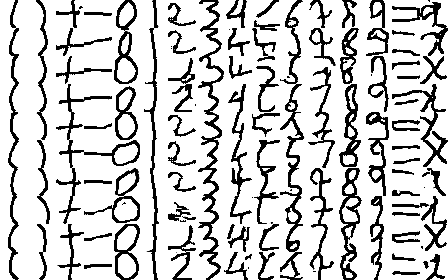 ( ) + - 0 1 2 3 4 5 6 7 8 9 = x
( ) + - 0 1 2 3 4 5 6 7 8 9 = x
( ) + - 0 1 2 3 4 5 6 7 8 9 = x
( ) + - 0 1 2 3 4 5 6 7 8 9 = x
( ) + - 0 1 2 3 4 5 6 7 8 9 = x
( ) + - 0 1 2 3 4 5 6 7 8 9 = x
( ) + - 0 1 2 3 4 5 6 7 8 9 = x
( ) + - 0 1 3 4 5 6 7 8 9 = x
( ) + - 0 1 2 3 4 5 6 7 8 9 = x
( ) + - 0 1 2 3 4 5 6 7 8 9 = x